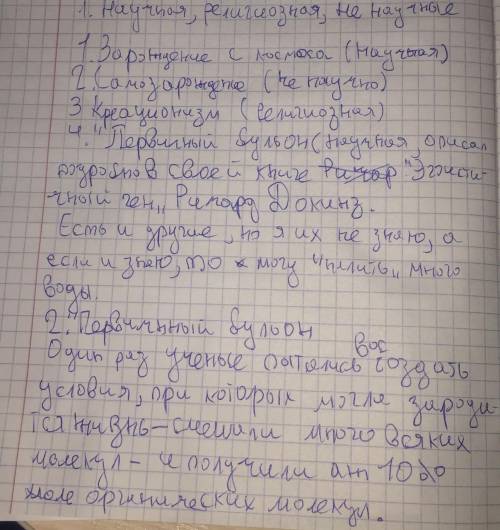 1. Научная, религиозная, не научные
1. Зарождение с космоса (научная)
2. Самозарождение (не научно)
3 Креационизм (религиозная)
4. "Первичный бульон (научная, описал
подробно в своей книге "Эгоисти-
чный ген„ Ричард Докинз.
Есть и другие, но я их не знаю, а
если и знаю, то могу "налить„ много
воды.
2. "Первичнный бульон
Один раз ученые пытались воссоздать
условия, при которых могла зароди-
тся жизнь – смешали много всяких
молекул – и получили аж 10%
органических молекул.